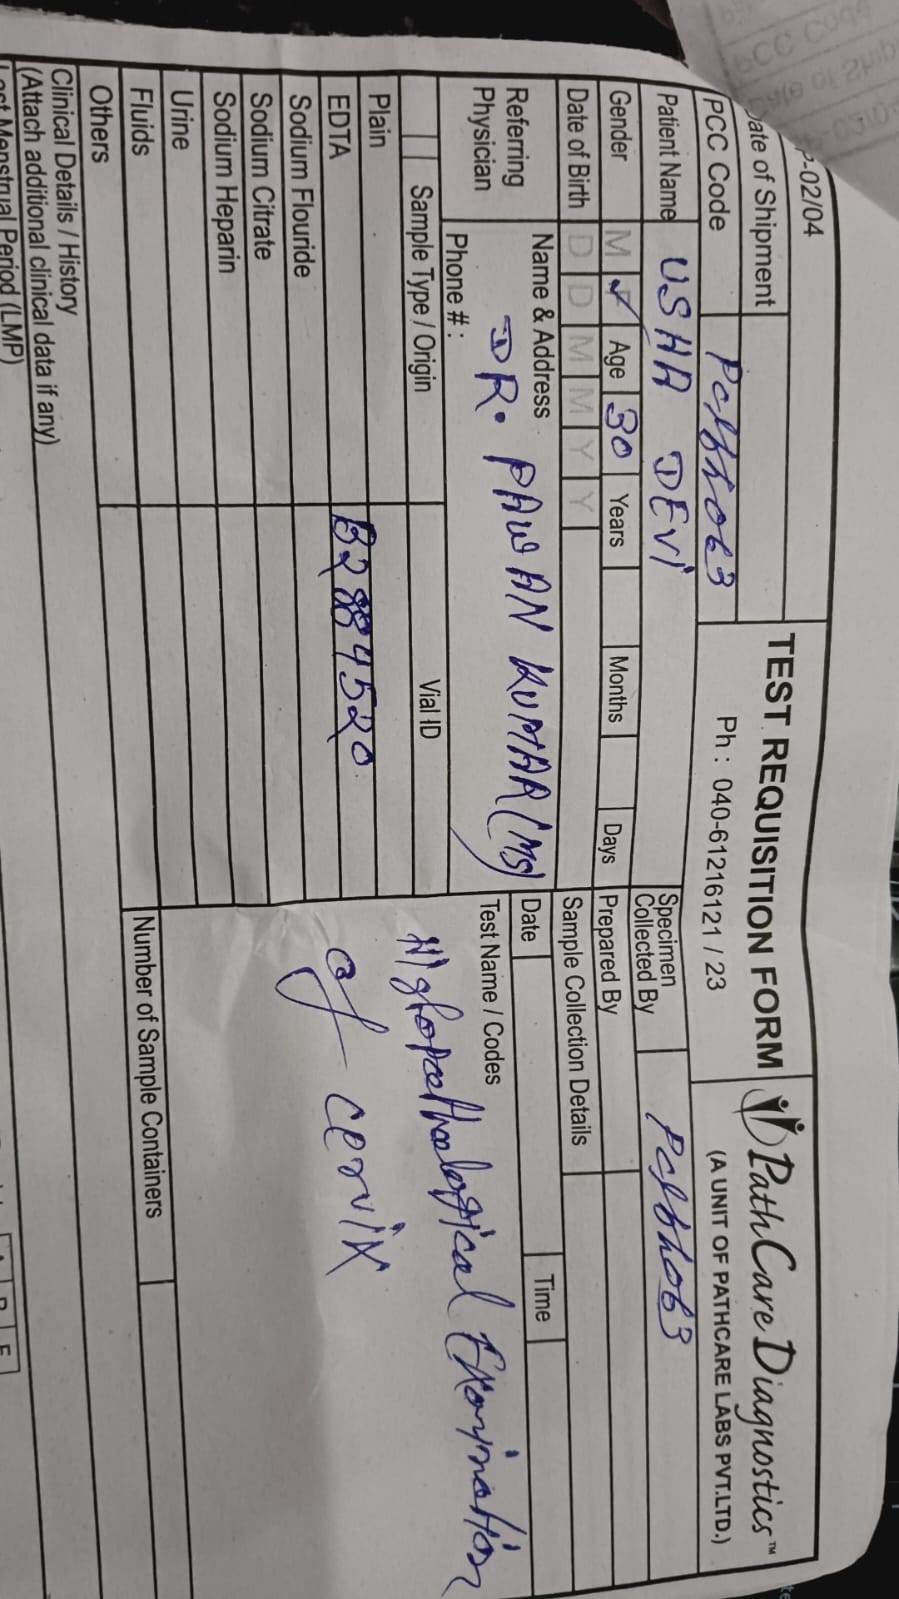 P-02/04
TEST REQUISITION FORM
PathCare Diagnostics™
Date of Shipment
Ph : 040-61216121 / 23
(A UNIT OF PATHCARE LABS PVT.LTD.)
PCC Code
Patient Name USHA DEVI
Specimen
Collected By
Gender M ✓ Age 30 Years Months Days
Prepared By
Date of Birth D D M M Y Y
Sample Collection Details
Date Time
Referring
Physician
Name & Address
DR. PAWAN KUMAR (MS)
Phone # :
Test Name / Codes
Histopathological Examination
of cervix
Sample Type / Origin Vial ID
Plain
EDTA B2884520
Sodium Flouride
Sodium Citrate
Sodium Heparin
Urine
Fluids
Others
Number of Sample Containers
Clinical Details / History
(Attach additional clinical data if any)
Last Menstrual Period (LMP)
PCC Code
Date of Ship